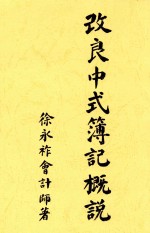 改良中式簿記概説
徐永祚會計師著